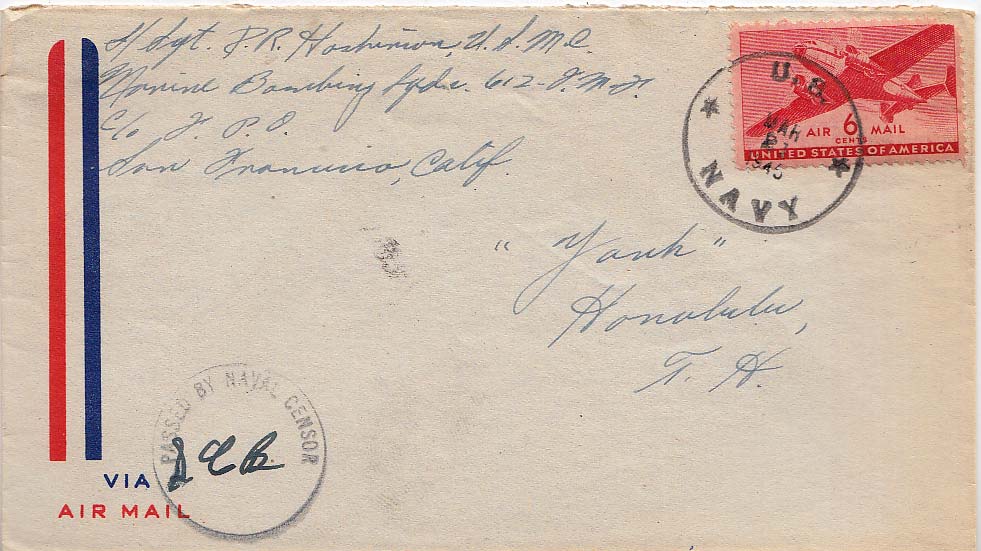 S/Sgt. P. R. U.S.M.C.
Marine Bombing Sqdn. 612
C/o F. P. O.
San Francisco, Calif.
U.S.
NAVY
MAR
1945
AIR 6 MAIL
CENTS
UNITED STATES OF AMERICA
"Yank"
Honolulu,
T. H.
PASSED BY NAVAL CENSOR
VIA
AIR MAIL